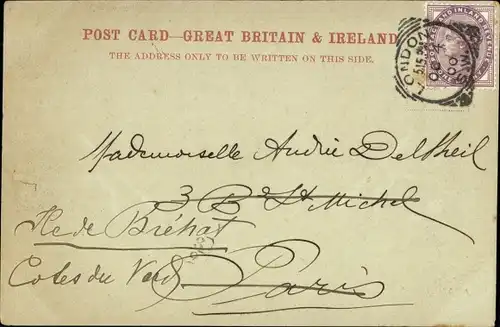 POST CARD—GREAT BRITAIN & IRELAND
THE ADDRESS ONLY TO BE WRITTEN ON THIS SIDE.
LONDON
Mademoiselle Andrée Delpheil
3 Bd St Michel
Ile de Bréhat
Cotes du Nord
Paris